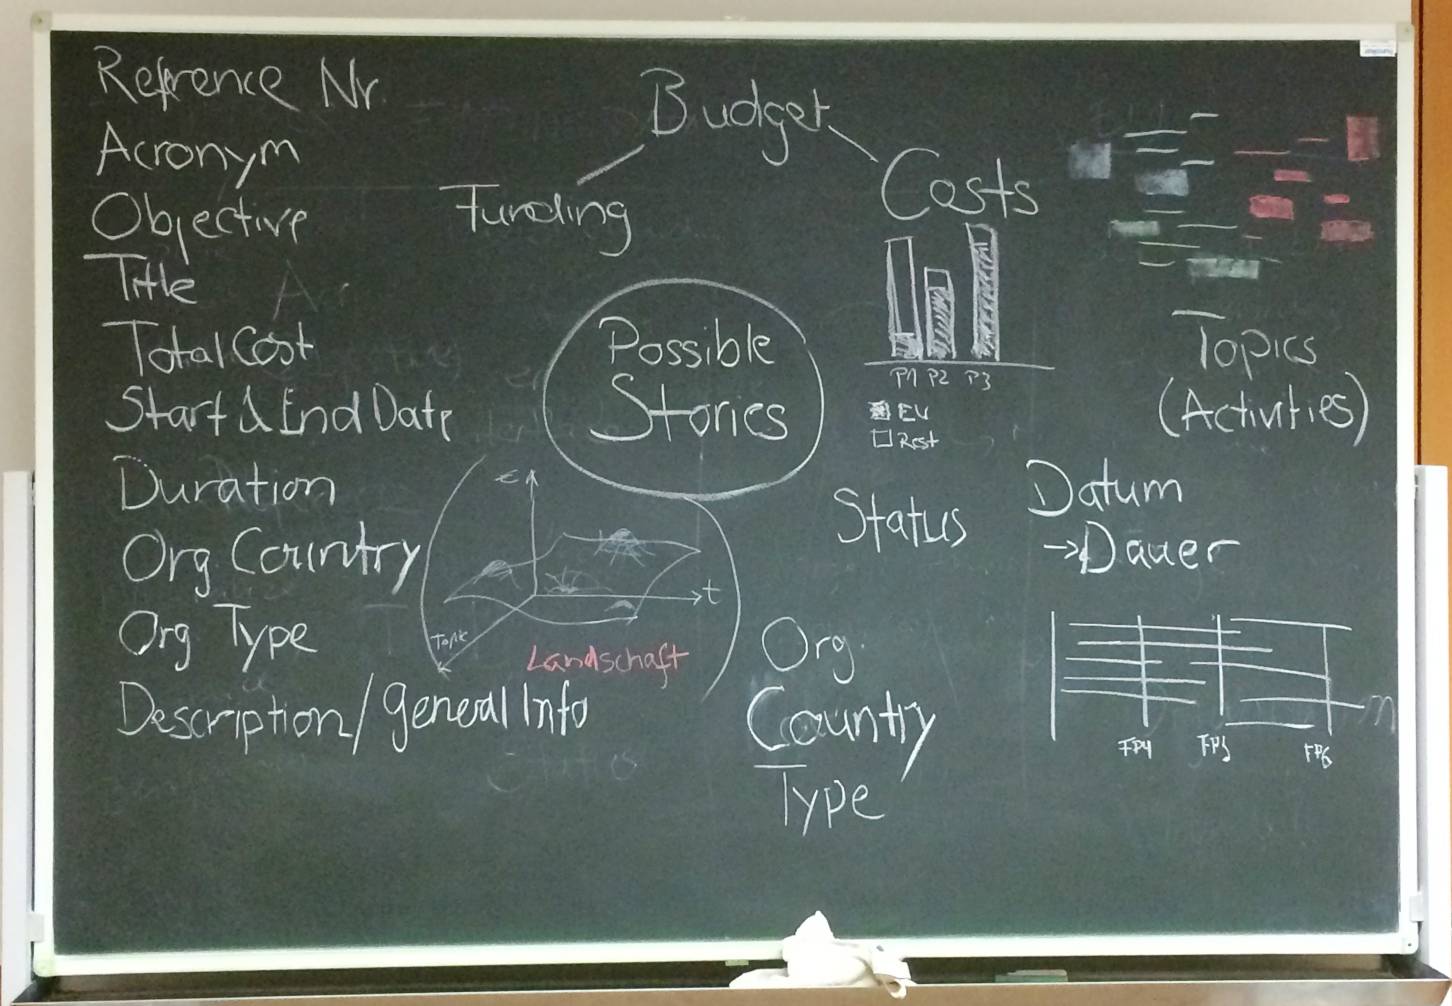 Reference Nr.
Acronym
Objective
Title
Total Cost
Start & End Date
Duration
Org Country
Org Type
Description/general Info
Budget
Funding
Costs
P1 P2 P3
EU
Rest
Possible
Stories
€
t
Topic
Landschaft
Status
Org.
Country
Type
Topics
(Activities)
Datum
→Dauer
FP4 FP5 FP6